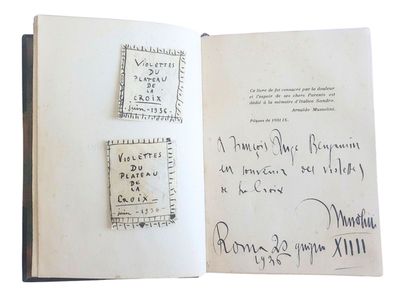 VIOLETTES
DU
PLATEAU
DE
LA
CROIX
juin - 1936 -
VIOLETTES
DU
PLATEAU
DE
LA
CROIX
juin - 1936 -
Ce livre de foi consacré par la douleur
et l'espoir de ses chers Parents est
dédié à la mémoire d'Italico Sandro.
Arnaldo Mussolini.
Pâques de 1931 IX.
A François Ange Benjamin
en souvenir des violettes
de La Croix
Mussolini
Roma 20 giugno XIIII
1936